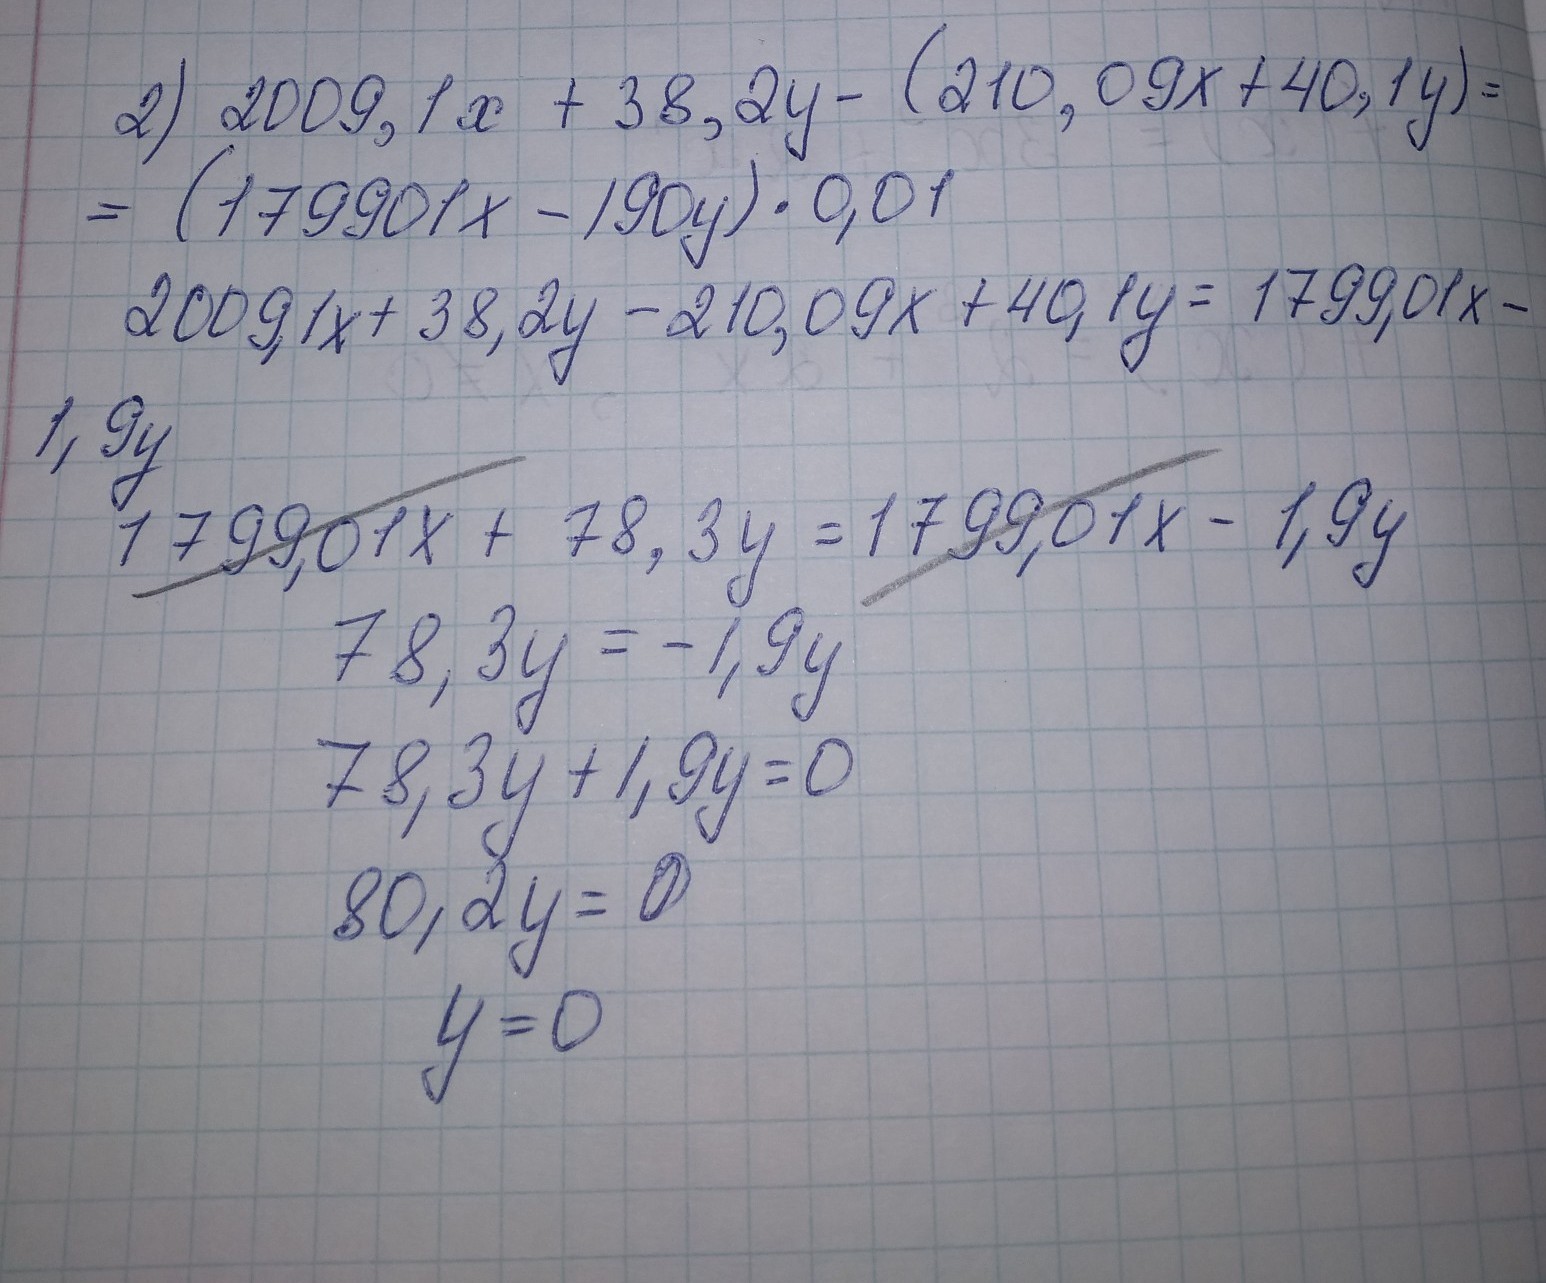 2) 2009,1x + 38,2y - (210,09x + 40,1y) =
= (179901x - 190y) · 0,01
2009,1x + 38,2y - 210,09x + 40,1y = 1799,01x -
1,9y
1799,01x + 78,3y = 1799,01x - 1,9y
78,3y = -1,9y
78,3y + 1,9y = 0
80,2y = 0
y = 0